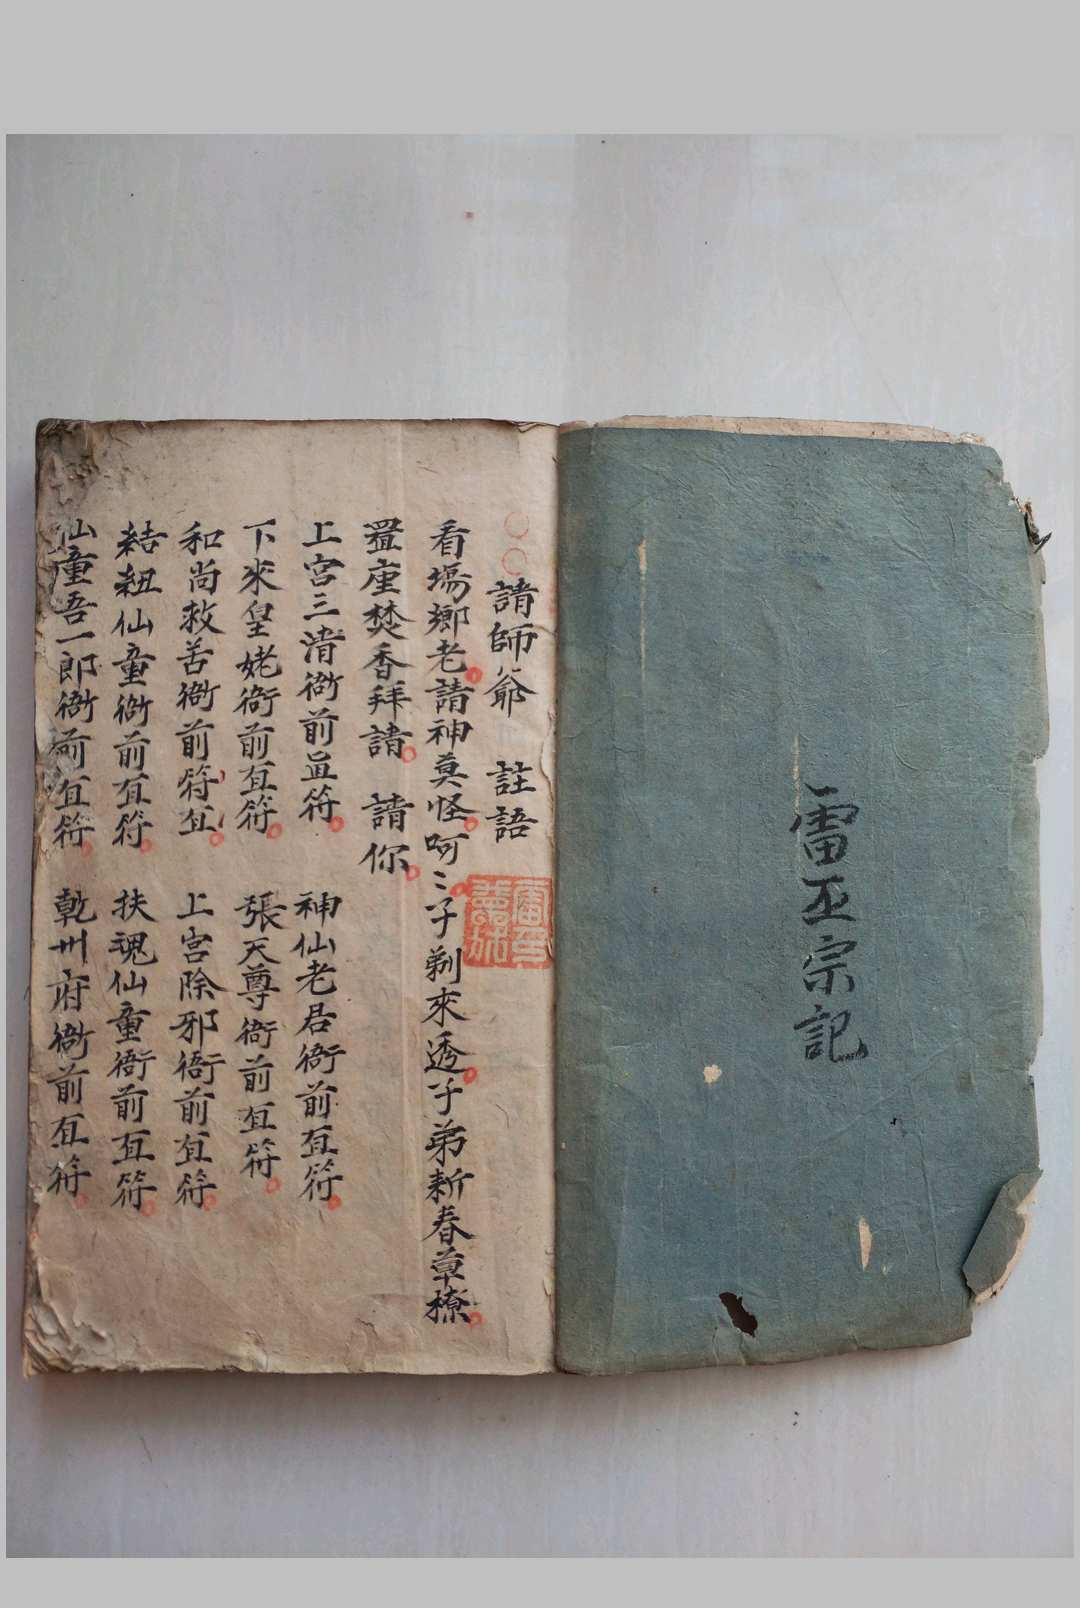 雷丕宗記
請師爺 註語
看塲鄉老請神莫怪呵〻子剃來透子弟新春草橑
置座焚香拜請 請你
上宮三清衙前㫖符 神仙老君衙前㫖符
下來皇姥衙前㫖符 張天尊衙前㫖符
和尚救苦衙前符㫖 上宮除邪衙前㫖符
結紐仙童衙前㫖符 扶魂仙童衙前㫖符
仙童吾一郎衙前㫖符 乾州府衙前㫖符